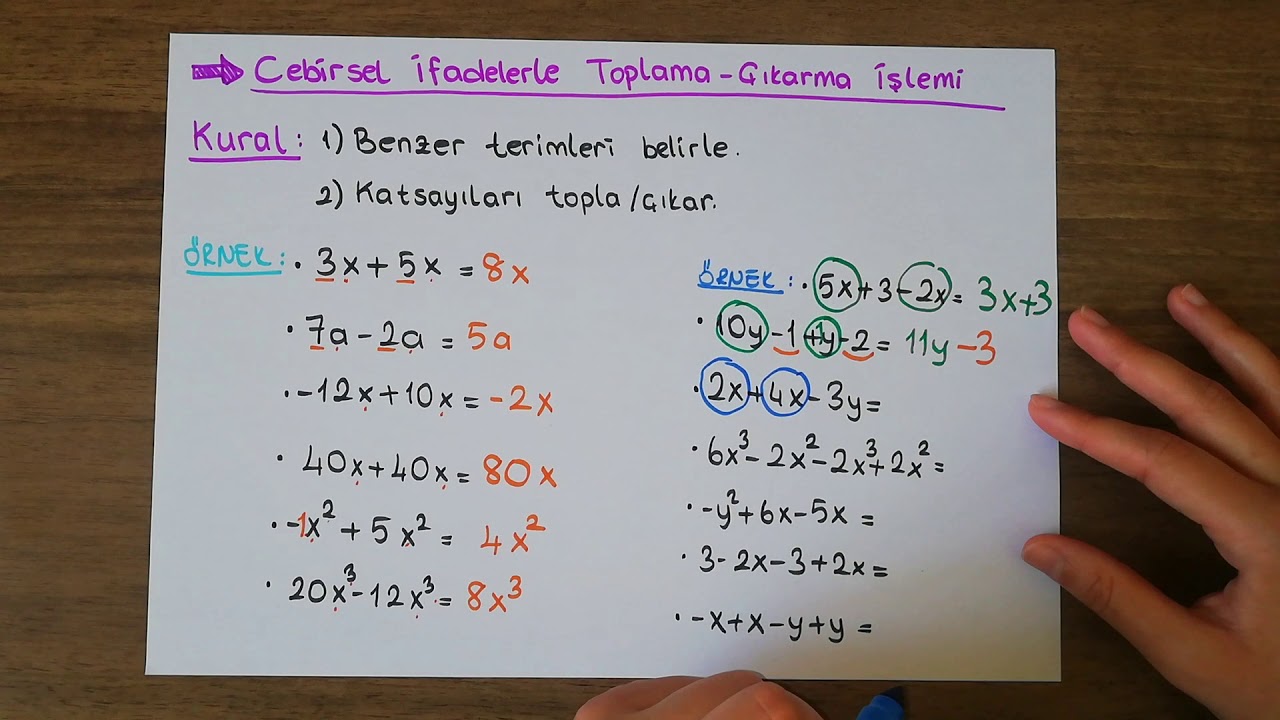 Cebirsel İfadelerle Toplama-Çıkarma İşlemi
Kural: 1) Benzer terimleri belirle.
2) Katsayıları topla/çıkar.
ÖRNEK: • 3x+5x = 8x
• 7a-2a = 5a
• -12x+10x = -2x
• 40x+40x = 80x
• -1x² + 5x² = 4x²
• 20x³-12x³ = 8x³
ÖRNEK: • 5x+3-2x = 3x+3
• 10y-1+1y-2 = 11y-3
• 2x+4x-3y=
• 6x³-2x²-2x³+2x²=
• -y²+6x-5x =
• 3-2x-3+2x=
• -x+x-y+y =